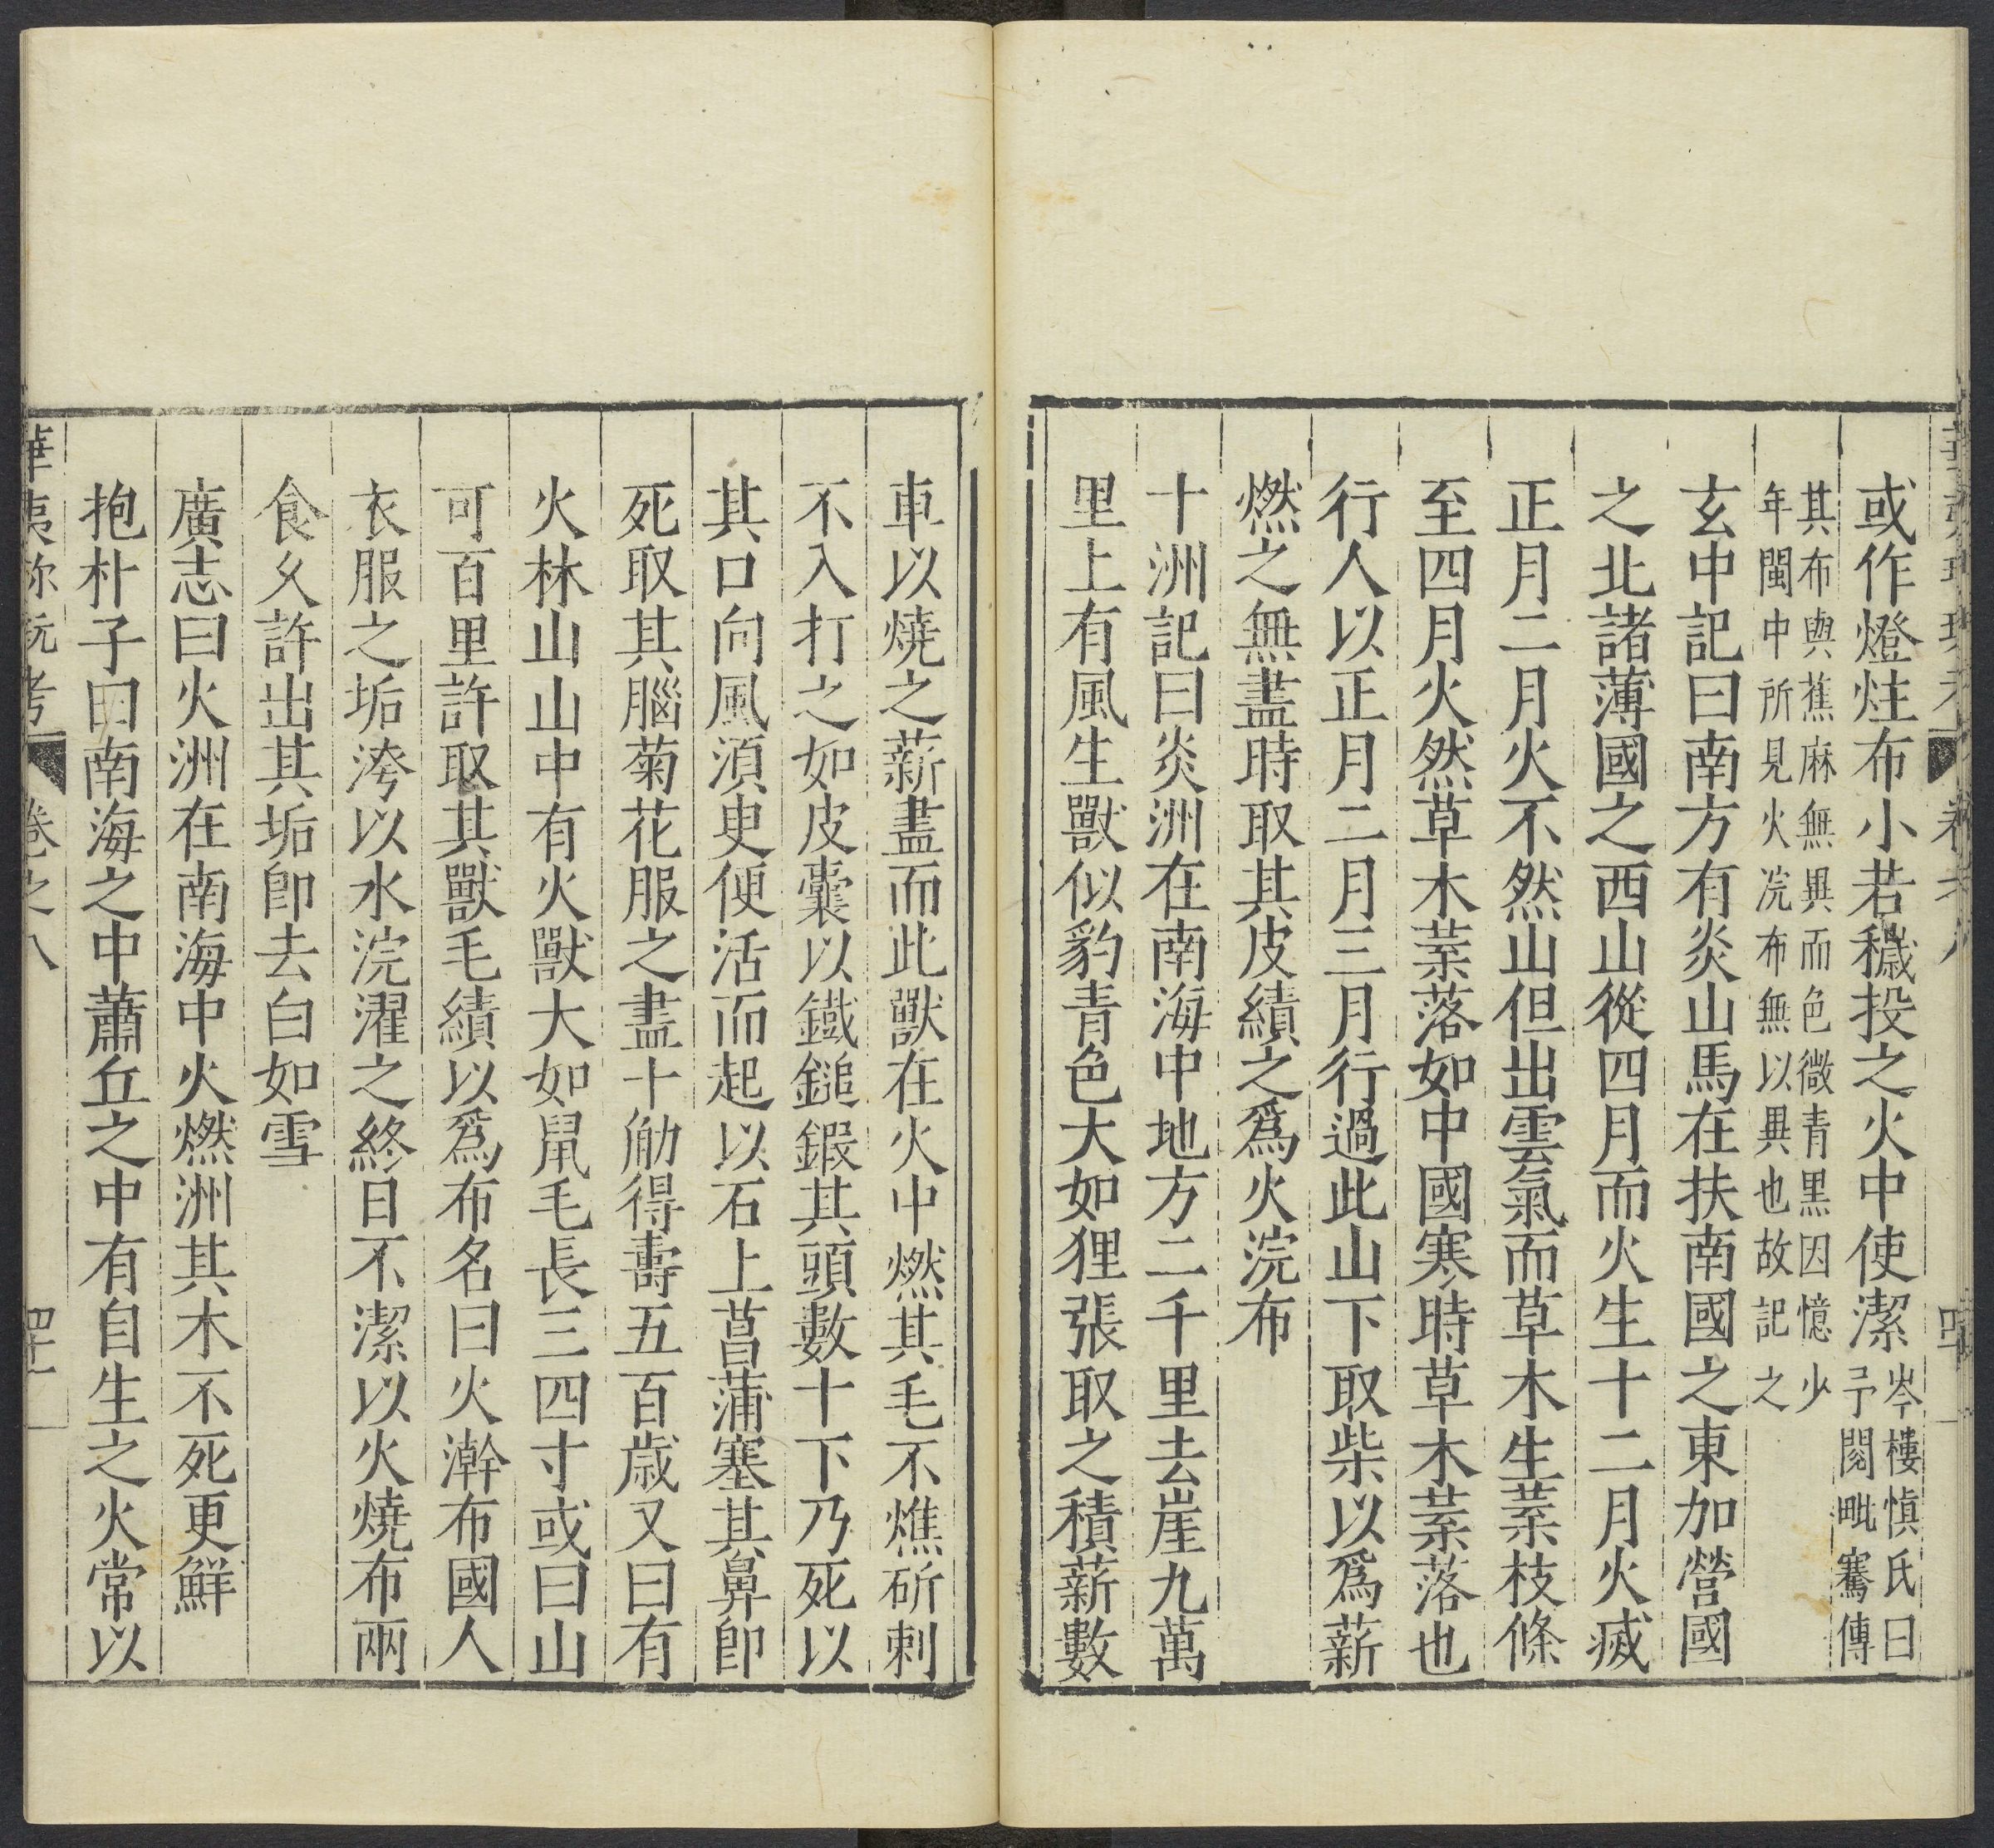 或作燈炷布小若穢投之火中使潔岑樓慎氏曰
予閱毗騫傳
其布與蕉麻無異而色微青黑因憶少
年閩中所見火浣布無以異也故記之
玄中記曰南方有炎山焉在扶南國之東加營國
之北諸薄國之西山從四月而火生十二月火滅
正月二月火不然山但出雲氣而草木生葉枝條
至四月火然草木葉落如中國寒時草木葉落也
行人以正月二月三月行過此山下取柴以爲薪
燃之無盡時取其皮績之爲火浣布
十洲記曰炎洲在南海中地方二千里去崖九萬
里上有風生獸似豹青色大如狸張取之積薪數
車以燒之薪盡而此獸在火中燃其毛不燋斫刺
不入打之如皮囊以鐵鎚鍛其頭數十下乃死以
其口向風須臾便活而起以石上菖蒲塞其鼻即
死取其腦菊花服之盡十觔得壽五百歲又曰有
火林山山中有火獸大如鼠毛長三四寸或曰山
可百里許取其獸毛績以爲布名曰火澣布國人
衣服之垢洿以水浣濯之終日不潔以火燒布兩
食久許出其垢即去白如雪
廣志曰火洲在南海中火燃洲其木不死更鮮
抱朴子曰南海之中蕭丘之中有自生之火常以
華夷 玩考 卷之八 四十一